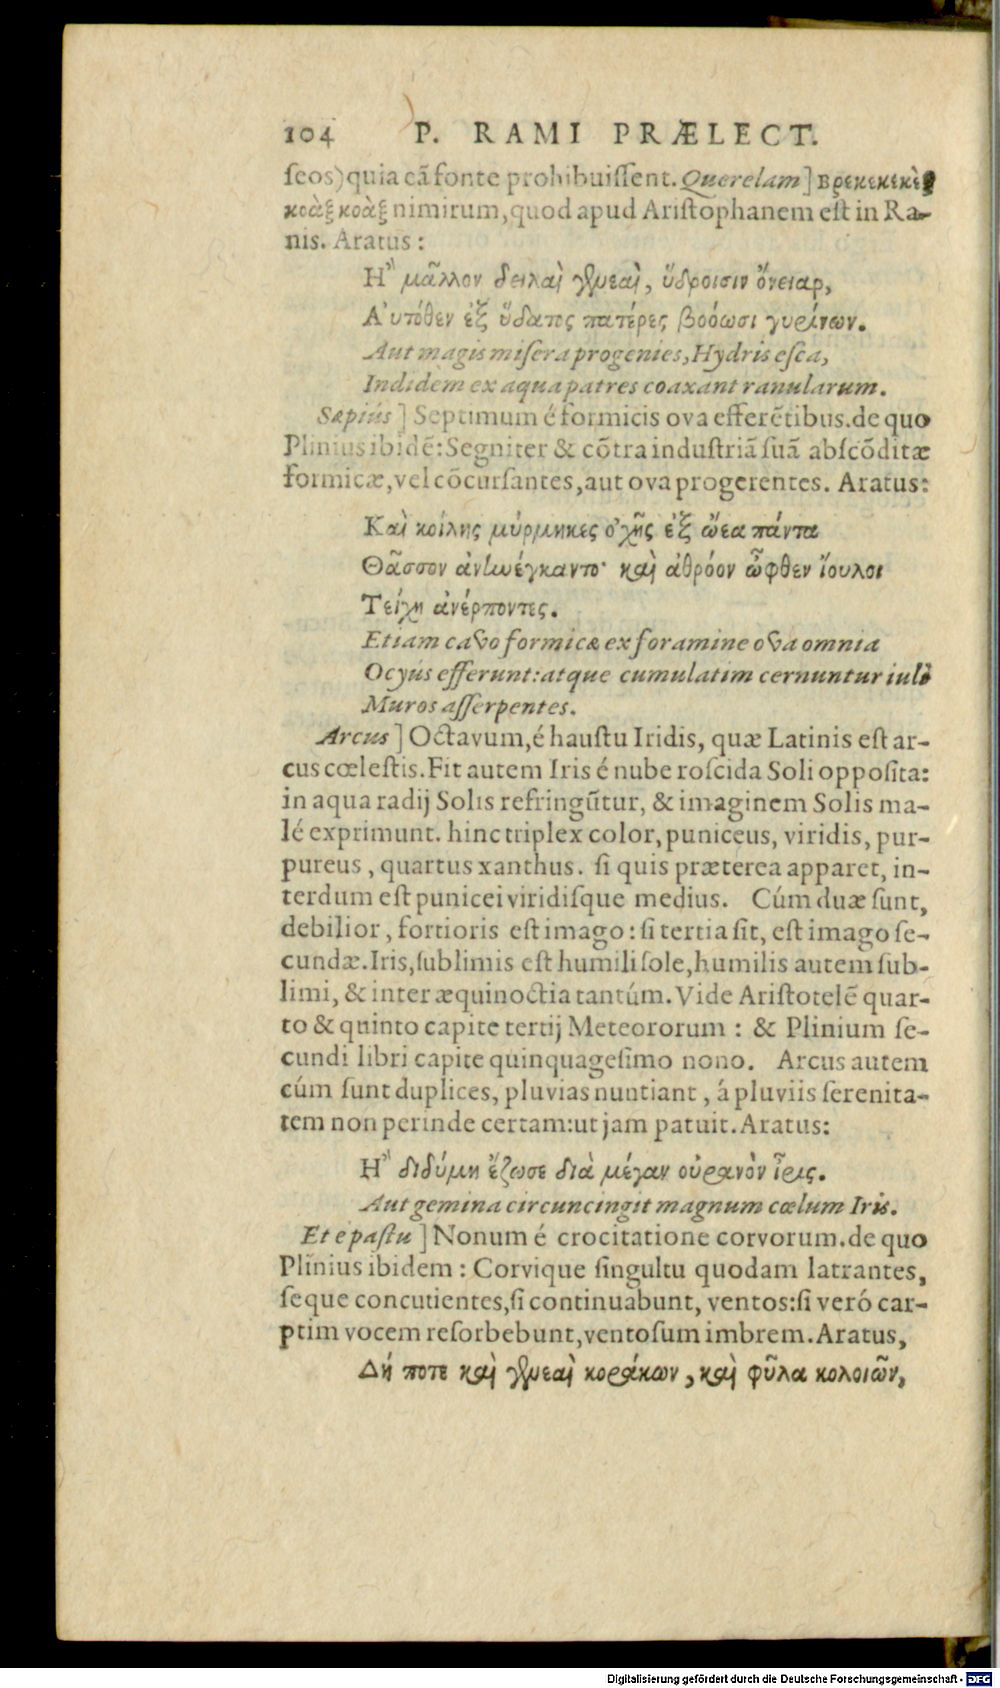 104 P. RAMI PRÆLECT.
ſeos) quia eã fonte prohibuiſſent. Querelam] βρεκεκεκὲξ
κοὰξ κοὰξ nimirum, quod apud Ariſtophanem eſt in Ra-
nis. Aratus:
Η῍ μᾶλλον δειλαὶ γενεαὶ, ὕδροισιν ὄνειαρ,
Α᾿υτόθεν ἐξ ὕδατος πατέρες βοόωσι γυρίνων.
Aut magis miſera progenies, Hydris eſca,
Indidem ex aqua patres coaxant ranularum.
Sæpiús] Septimum é formicis ova efferẽtibus. de quo
Plinius ibidẽ: Segniter & cõtra induſtriã ſuã abſcõditæ
formicæ, vel cõcurſantes, aut ova progerentes. Aratus:
Καὶ κοίλης μύρμηκες ὀχῆς ἐξ ὤεα πάντα
Θᾶσσον ἀνηνέγκαντο· καὶ ἀθρόον ὦφθεν ἴουλοι
Τείχη ἀνέρποντες.
Etiam cavo formicæ ex foramine ova omnia
Ocyús efferunt: atque cumulatim cernuntur iuli
Muros aſſerpentes.
Arcus] Octavum, é hauſtu Iridis, quæ Latinis eſt ar-
cus cœleſtis. Fit autem Iris é nube roſcida Soli oppoſita:
in aqua radij Solis refringũtur, & imaginem Solis ma-
lé exprimunt. hinc triplex color, puniceus, viridis, pur-
pureus, quartus xanthus. ſi quis præterea apparet, in-
terdum eſt punicei viridiſque medius. Cúm duæ ſunt,
debilior, fortioris eſt imago: ſi tertia ſit, eſt imago ſe-
cundæ. Iris, ſublimis eſt humili ſole, humilis autem ſub-
limi, & inter æquinoctia tantúm. Vide Ariſtotelẽ quar-
to & quinto capite tertij Meteororum: & Plinium ſe-
cundi libri capite quinquageſimo nono. Arcus autem
cúm ſunt duplices, pluvias nuntiant, á pluviis ſerenita-
tem non perinde certam: ut jam patuit. Aratus:
Η῍ διδύμη ἔζωσε διὰ μέγαν οὐρανὸν ἶρις.
Aut gemina circuncingit magnum cœlum Iris.
Et e paſtu] Nonum é crocitatione corvorum. de quo
Plinius ibidem: Corvique ſingultu quodam latrantes,
ſeque concutientes, ſi continuabunt, ventos: ſi veró car-
ptim vocem reſorbebunt, ventoſum imbrem. Aratus,
Δή ποτε καὶ γενεαὶ κοράκων, καὶ φῦλα κολοιῶν,
Digitalisierung gefördert durch die Deutsche Forschungsgemeinschaft - DFG